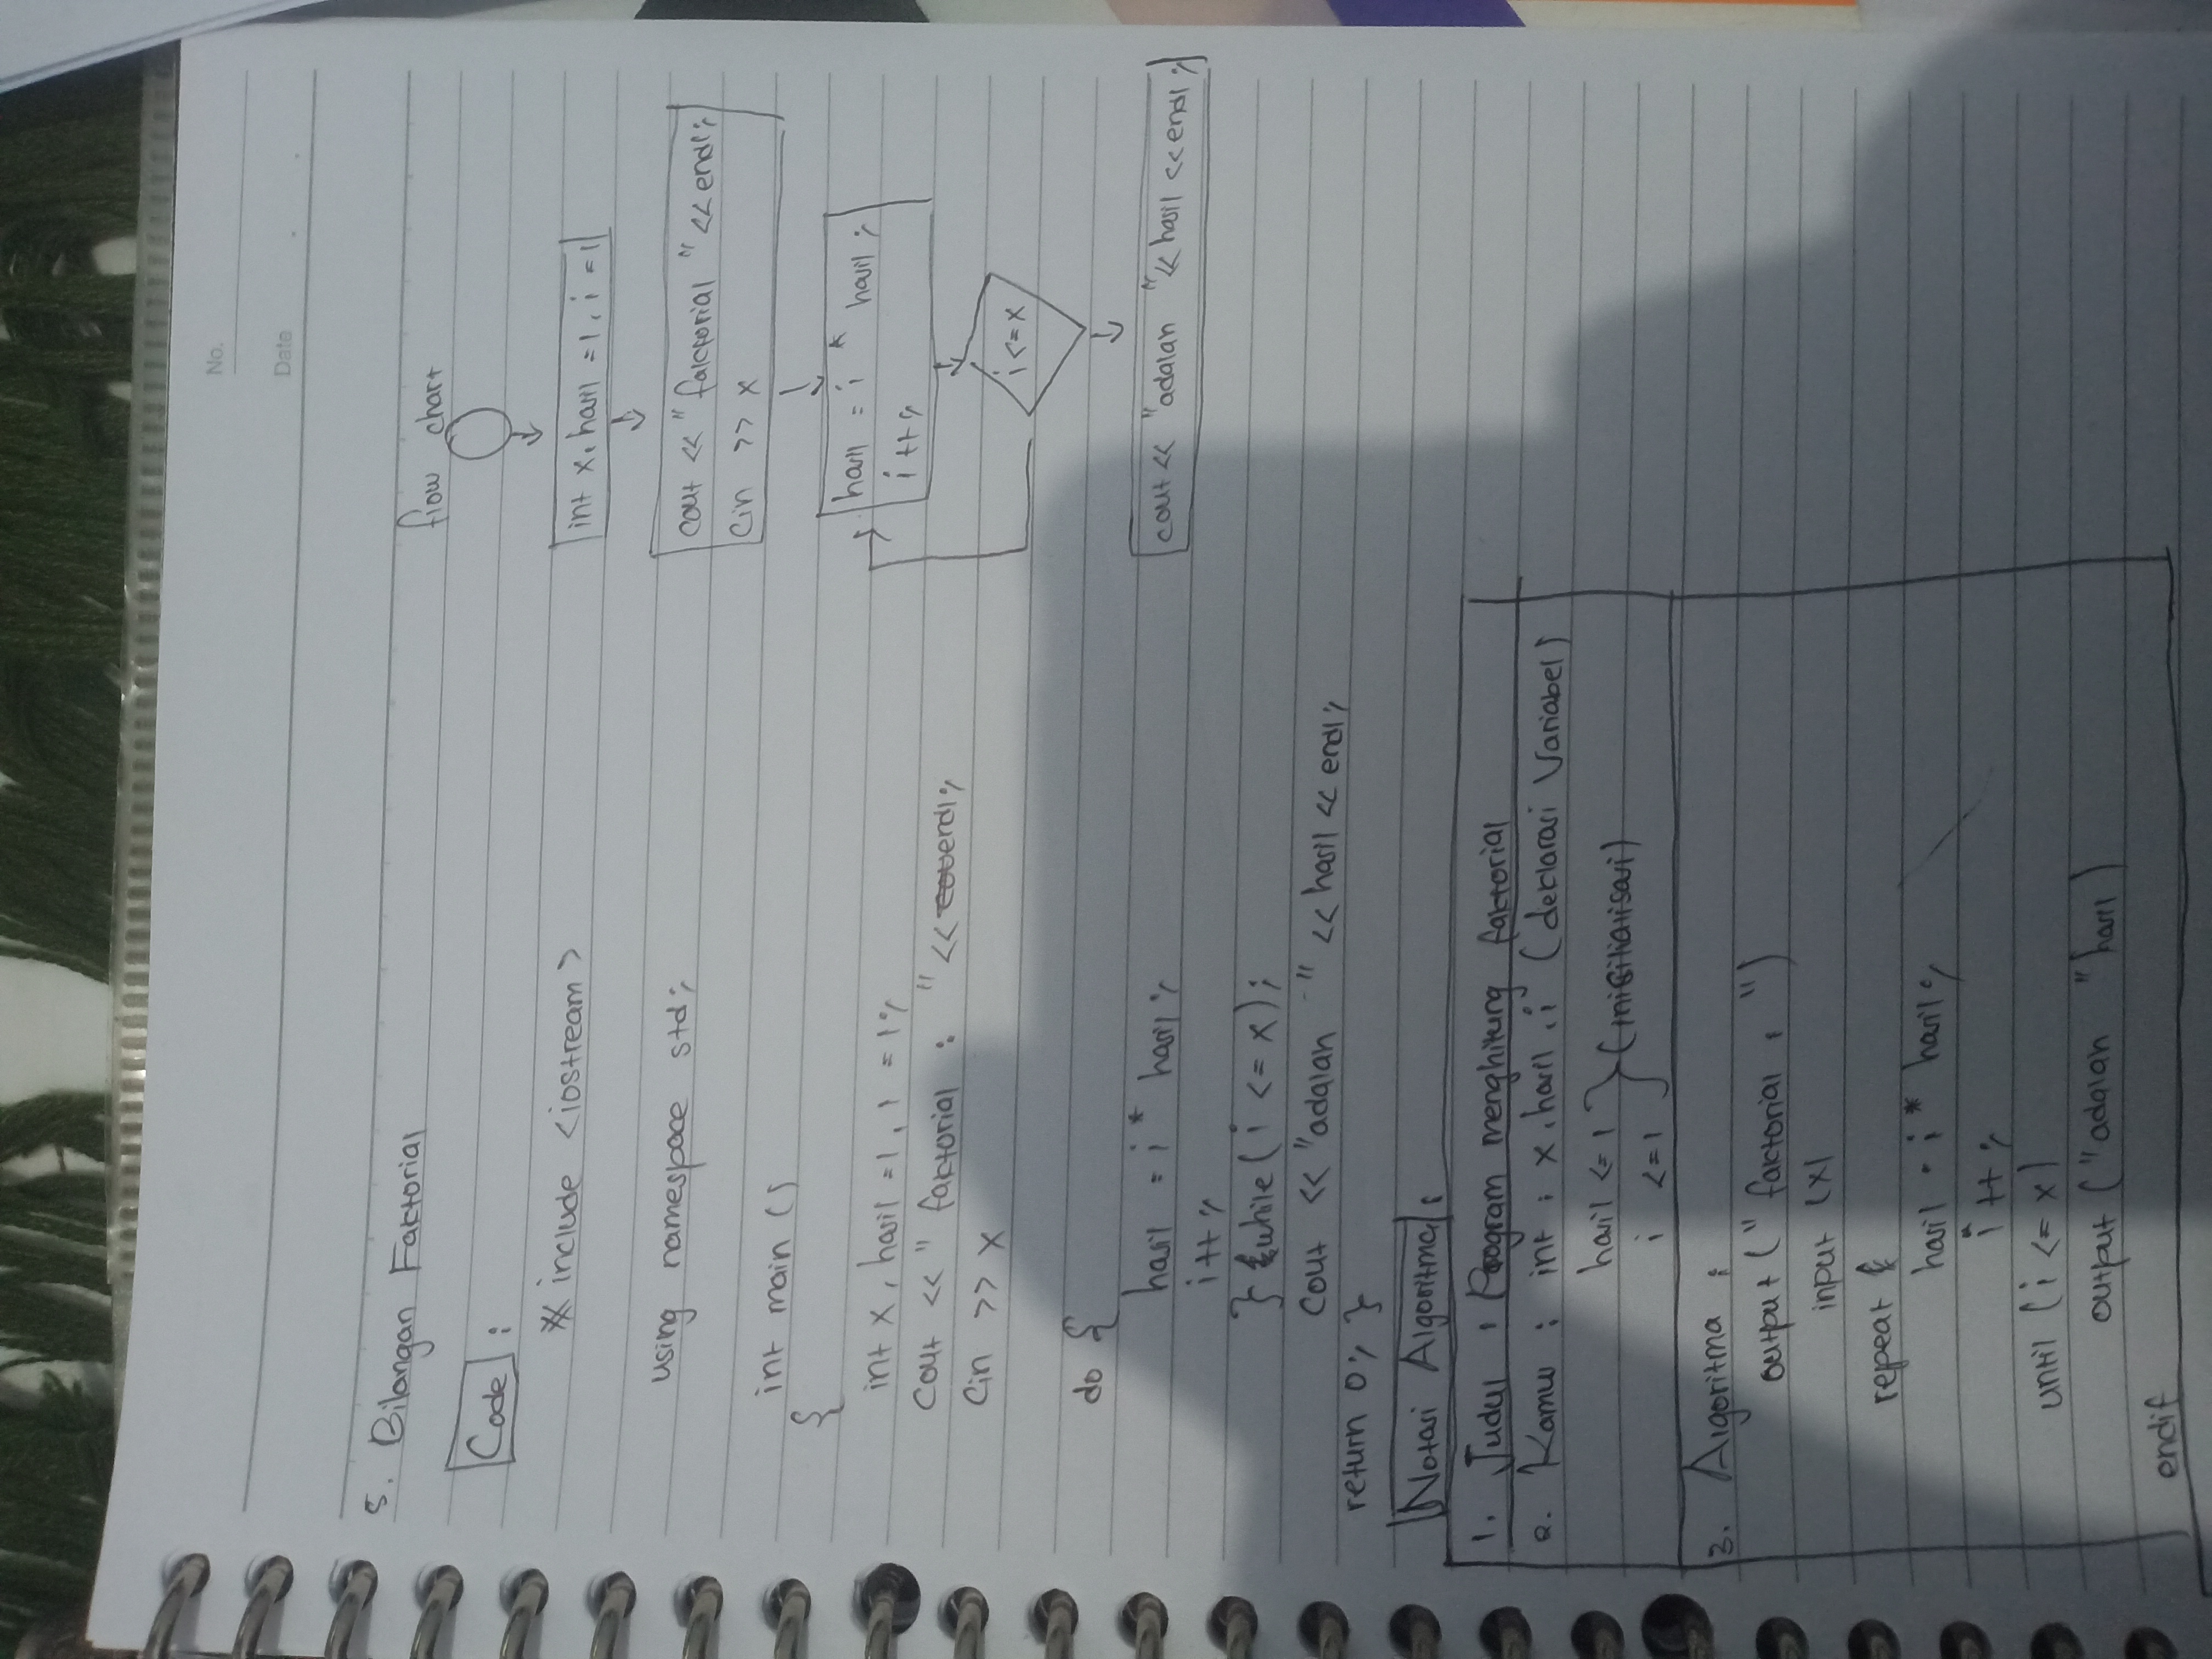 No.
Date
5. Bilangan Faktorial
Code :
# include <iostream>
using namespace std;
int main ()
{
int x, hasil =1, i =1;
cout << " faktorial : " << endl;
Cin >> x
do {
hasil = i * hasil;
i++;
} while ( i <= x );
cout << "adalah " << hasil << endl;
return 0; }
flow chart
int x, hasil =1, i =1
cout << " faktorial " << endl;
Cin >> x
hasil = i * hasil;
i++;
i <= x
cout << "adalah " << hasil << endl;
Notasi Algoritma :
1. Judul : Program menghitung faktorial
2. Kamus : int : x, hasil, i (deklarasi Variabel)
hasil <= 1
i <= 1
3. Algoritma :
output (" faktorial : ")
input (x)
repeat {
hasil = i * hasil;
i++;
until (i <= x)
output ("adalah " hasil)
endif